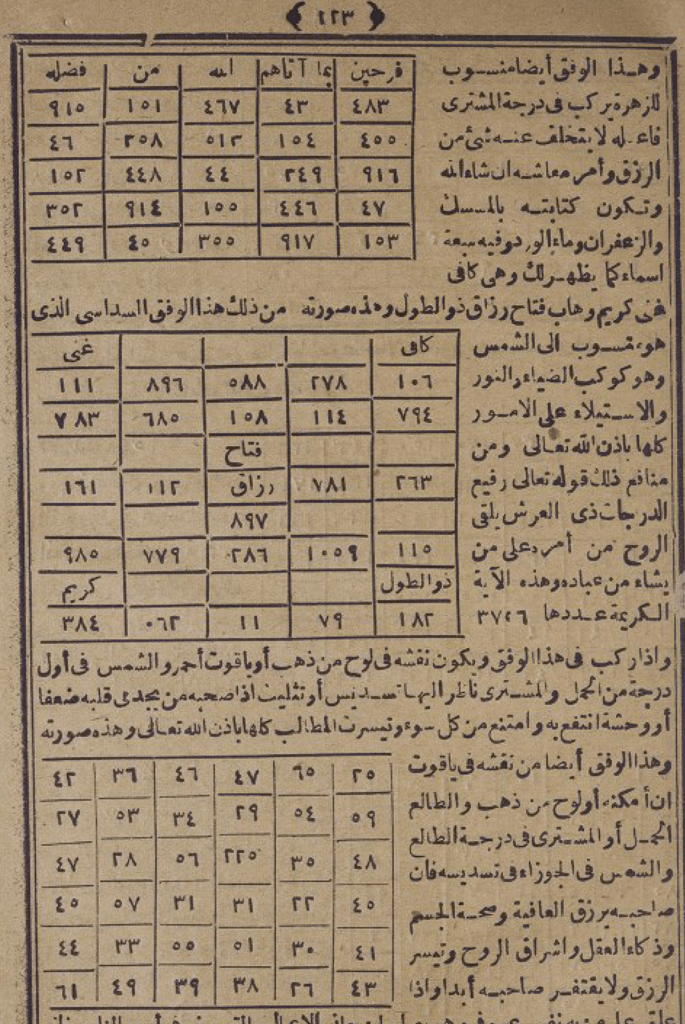 ١٢٣
وهذا الوفق أيضا منسوب
للزهرة يركب فى درجة المشترى
فاعله لا يتخلف عنه شئ من
الرزق وأمر معاشه ان شاء الله
وتكون كتابته بالمسك
والزعفران وماء الورد وفيه سبعة
اسماء كما يظهر لك وهى كافى
فرحين بما آتاهم الله من فضله
٤٨٣ ٤٣ ٤٦٧ ١٥١ ٩١٥
٤٥٥ ١٥٤ ٥١٢ ٢٥٨ ٤٦
٩١٦ ٢٤٩ ٤٤ ٤٤٨ ١٥٢
٤٧ ٤٤٦ ١٥٥ ٩١٤ ٣٥٢
١٥٣ ٩١٧ ٣٥٥ ٤٥ ٤٤٩
غنى كريم وهاب فتاح رزاق ذو الطول وهذه صورته من ذلك هذا الوفق السداسى الذى
هو منسوب الى الشمس
وهو كوكب الضياء والنور
والاستيلاء على الامور
كلها باذن الله تعالى ومن
منافع ذلك قوله تعالى رفيع
الدرجات ذى العرش يلقى
الروح من أمره على من
يشاء من عباده وهذه الآية
الكريمة عددها ٣٧٢٦
كافى غنى
١٠٦ ٢٧٨ ٥٨٨ ٨٩٦ ١١١
٧٩٤ ١١٤ ١٥٨ ٦٨٥ ٧٨٣
فتاح
٢٦٣ ٧٨١ رزاق ١١٢ ١٦١
٨٩٧
١١٥ ١٠٥٩ ٢٨٦ ٧٧٩ ٩٨٥
ذو الطول كريم
١٨٢ ٧٩ ١١ ٠٦٢ ٣٨٤
واذا ركب فى هذا الوفق ويكون نقشه فى لوح من ذهب أو ياقوت أحمر والشمس فى أول
درجة من الحمل والمشترى ناظر اليها تسديس أو تثليث اذا صحبه من يجد فى قلبه ضعفا
أو وحشة انتفع به وامتنع من كل سوء وتيسرت المطالب كلها باذن الله تعالى وهذه صورته
وهذا الوفق أيضا من نقشه فى ياقوت
ان أمكنه أو لوح من ذهب والطالع
الحمل أو المشترى فى درجة الطالع
والشمس فى الجوزاء فى تسديسه فان
صاحبه يرزق العافية وصحة الجسم
وذكاء العقل واشراق الروح وتيسر
الرزق ولا يفتقر صاحبه أبدا واذا
٢٥ ٦٥ ٤٧ ٤٦ ٣٦ ٤٢
٥٩ ٥٤ ٢٩ ٣٤ ٥٣ ٢٧
٤٨ ٣٥ ٢٢٥ ٥٦ ٢٨ ٤٧
٤٥ ٢٢ ٣١ ٣١ ٥٧ ٤٥
٤١ ٣٠ ٥١ ٥٥ ٣٣ ٤٤
٤٣ ٢٦ ٣٨ ٣٩ ٤٩ ٦١